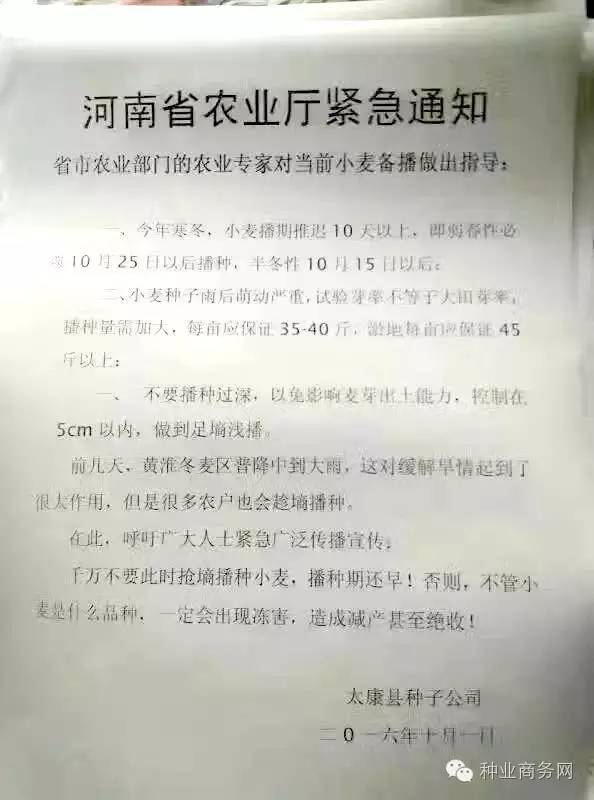 河南省农业厅紧急通知
省市农业部门的农业专家对当前小麦备播做出指导：
一、今年寒冬，小麦播期推迟10天以上，即弱春性必
须10月25日以后播种，半冬性10月15日以后；
二、小麦种子雨后萌动严重，试验芽率不等于大田芽率，
播种量需加大，每亩应保证35-40斤，淤地每亩应保证45
斤以上；
一、 不要播种过深，以免影响麦芽出土能力，控制在
5cm以内，做到足墒浅播。
前几天，黄淮冬麦区普降中到大雨，这对缓解旱情起到了
很大作用，但是很多农户也会趁墒播种。
在此，呼吁广大人士紧急广泛传播宣传：
千万不要此时抢墒播种小麦，播种期还早！否则，不管小
麦是什么品种，一定会出现冻害，造成减产甚至绝收！
太康县种子公司
二0一六年十月一日
种业商务网